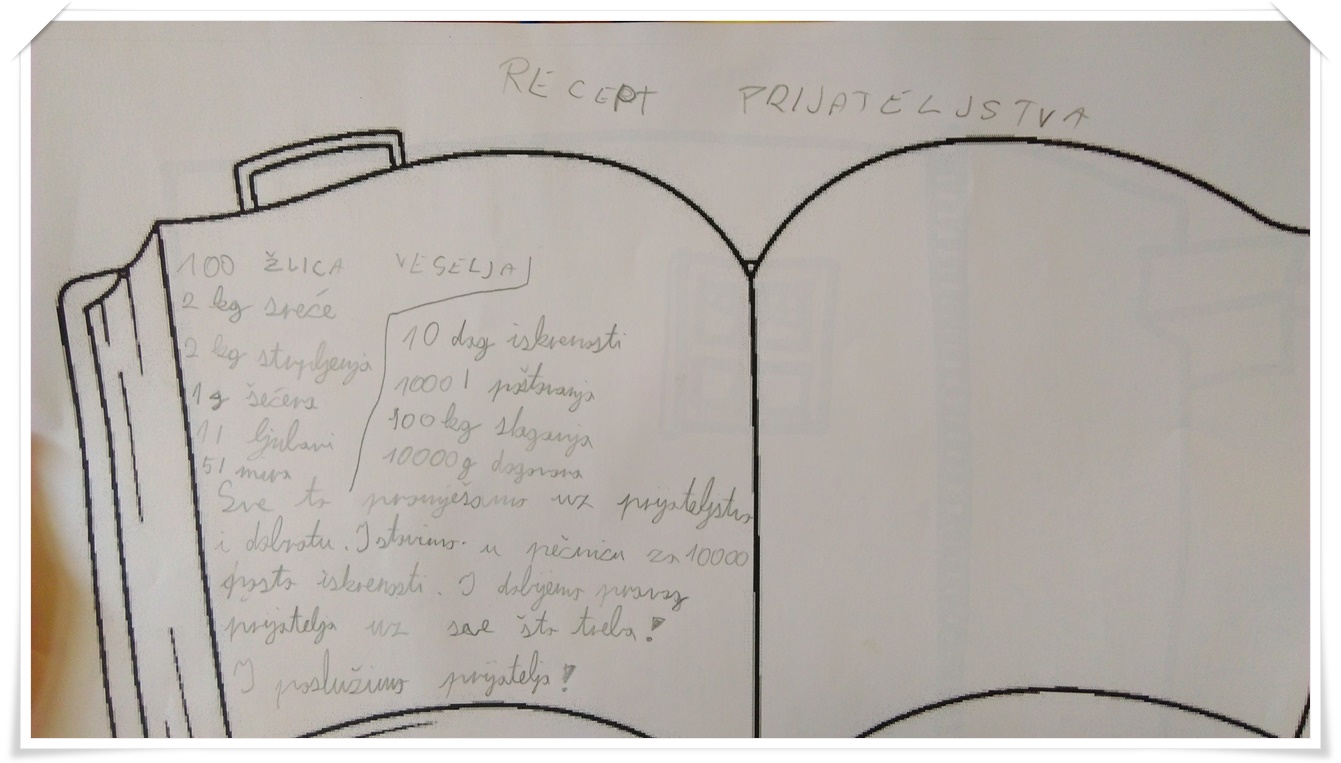 RECEPT PRIJATELJSTVA
100 ŽLICA VESELJA
2 kg sreće
2 kg strpljenja
1 g šećera
1 l ljubavi
5 l mira
10 dag iskrenosti
1000 l poštovanja
100 kg slaganja
10000 g dogovora
Sve to promješamo uz prijateljstvo
i dobrotu. I stavimo u pěčnicu za 10000
posto iskrenosti. I dobijemo pravog
prijatelja uz sve što treba!
I poslužimo prijatelja!